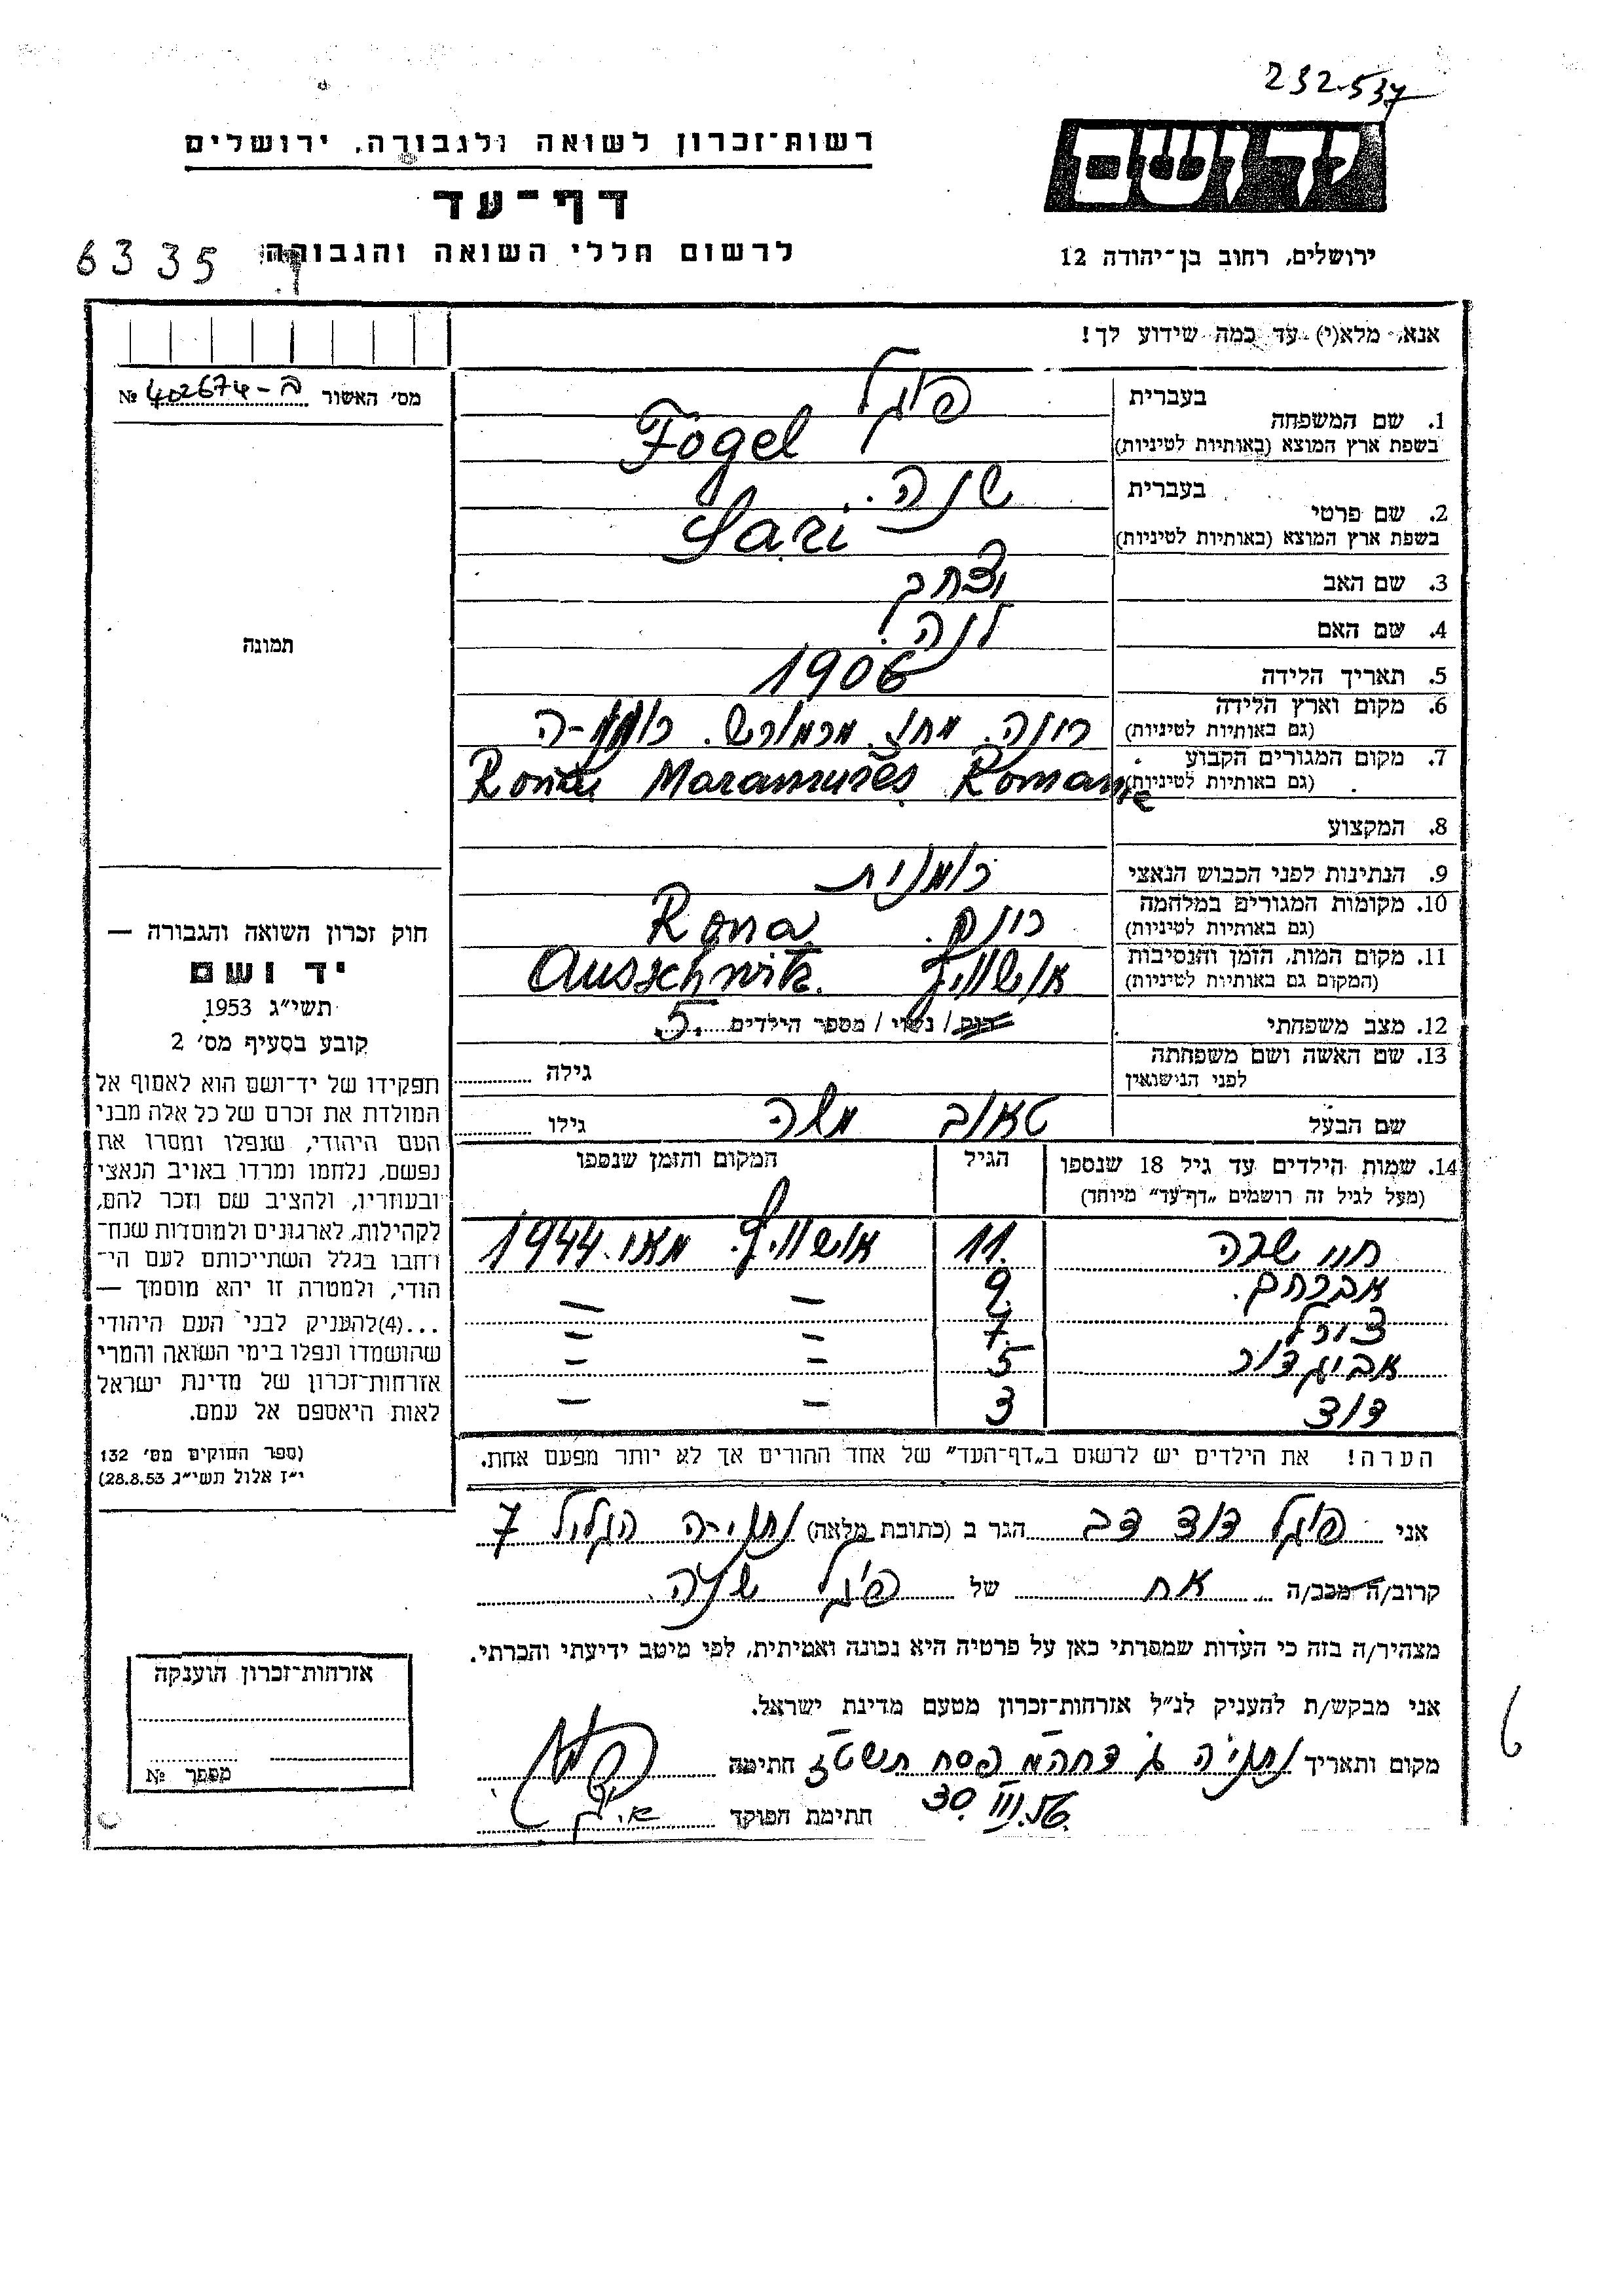 232537
יד ושם
רשות־זכרון לשואה ולגבורה, ירושלים
דף־עד
לרשום חללי השואה והגבורה
ירושלים, רחוב בן־יהודה 12
6335
אנא, מלא(י) עד כמה שידוע לך!
מס' האשור ב-402674 №
תמונה
1. שם המשפחה
בעברית פוגל
בשפת ארץ המוצא (באותיות לטיניות) Fogel
2. שם פרטי
בעברית
בשפת ארץ המוצא (באותיות לטיניות) Sari
3. שם האב יצחק
4. שם האם
5. תאריך הלידה 1906
6. מקום וארץ הלידה
(גם באותיות לטיניות) רונה. מחוז מרמורש.
7. מקום המגורים הקבוע
(גם באותיות לטיניות) Maramures Romanie
8. המקצוע
9. הנתינות לפני הכבוש הנאצי רומנית
10. מקומות המגורים במלחמה
(גם באותיות לטיניות) Rona
11. מקום המות, הזמן והנסיבות
(המקום גם באותיות לטיניות) אושוויץ Ausschwitz.
12. מצב משפחתי רוק / נשוי / מספר הילדים 5.
13. שם האשה ושם משפחתה
לפני הנישואין גילה
שם הבעל טאוב משה גילו
14. שמות הילדים עד גיל 18 שנספו הגיל המקום והזמן שנספו
(מעל לגיל זה רושמים „דף־עד" מיוחד)
11. אושוויץ. מאי. 1944
אברהם. 9 — —
7 — —
אביגדור 5 — —
דוד 3 — —
הערה! את הילדים יש לרשום ב„דף־העד" של אחד ההורים אך לא יותר מפעם אחת.
חוק זכרון השואה והגבורה —
יד ושם
תשי"ג 1953
קובע בסעיף מס' 2
תפקידו של יד־ושם הוא לאסוף אל
המולדת את זכרם של כל אלה מבני
העם היהודי, שנפלו ומסרו את
נפשם, נלחמו ומרדו באויב הנאצי
ובעוזריו, ולהציב שם וזכר להם,
לקהילות, לארגונים ולמוסדות שנח־
רחבו בגלל השתייכותם לעם הי־
הודי, ולמטרה זו יהא מוסמך —
...(4)להעניק לבני העם היהודי
שהושמדו ונפלו בימי השואה והמרי
אזרחות־זכרון של מדינת ישראל
לאות היאספם אל עמם.
(ספר החוקים מס' 132
י"ז אלול תשי"ג 28.8.53)
אני פוגל דוד דב הגר ב (כתובת מלאה) נתניה הגליל 7
קרוב/ה מכב/ה אח של פוגל
מצהיר/ה בזה כי העדות שמסרתי כאן על פרטיה היא נכונה ואמיתית, לפי מיטב ידיעתי והכרתי.
אני מבקש/ת להעניק לנ"ל אזרחות־זכרון מטעם מדינת ישראל.
מקום ותאריך נתניה ג' דחהמ פסח תשט"ז חתימה
30. III. 56. חתימת הפוקד
אזרחות־זכרון הוענקה
מספר №
6